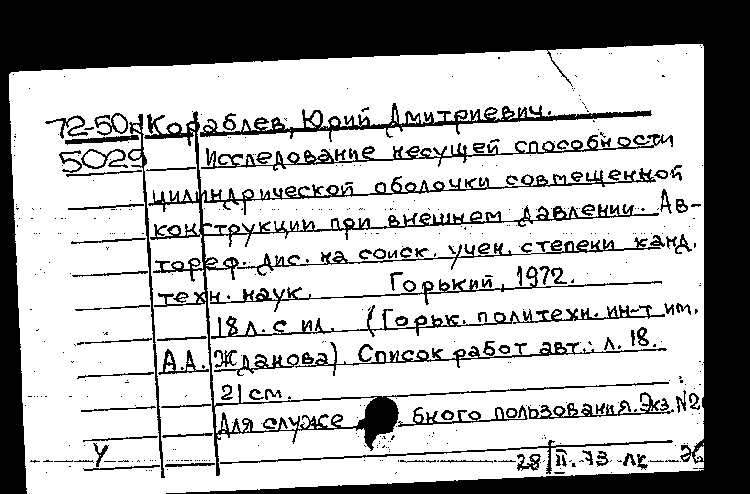 72-50к Кораблев, Юрий Дмитриевич.
5029 Исследование несущей способности
цилиндрической оболочки совмещенной
конструкции при внешнем давлении. Ав-
тореф. дис. на соиск. учен. степени канд.
техн. наук. Горький, 1972.
18 л. с ил. (Горьк. политехн. ин-т им.
А.А. Жданова). Список работ авт.: л. 18.
21 см.
Для служебного пользования. Экз. №2
У
28/II.73 лк